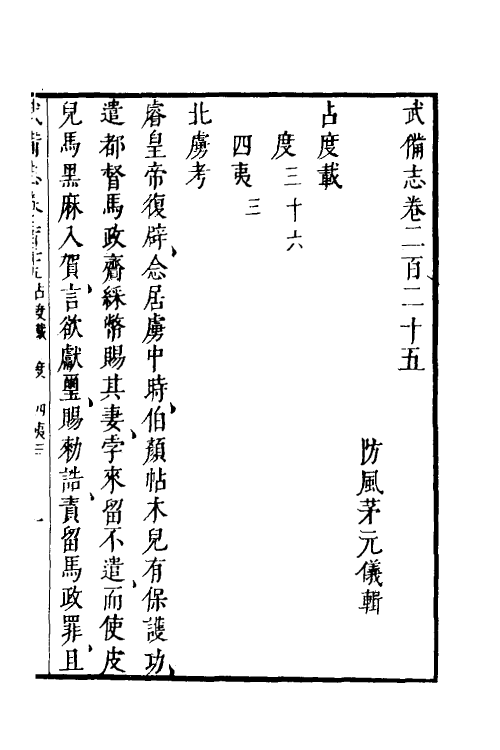 武備志卷二百二十五
防風茅元儀輯
占度載
度三十六
四夷三
北虜考
睿皇帝復辟、念居虜中時、伯顏帖木兒有保護功、
遣都督馬政齎綵幣賜其妻、孛來留不遣、而使皮
兒馬黑麻入賀、言欲獻璽、賜勅誥責留馬政罪、且
占度載 度 四夷三 一